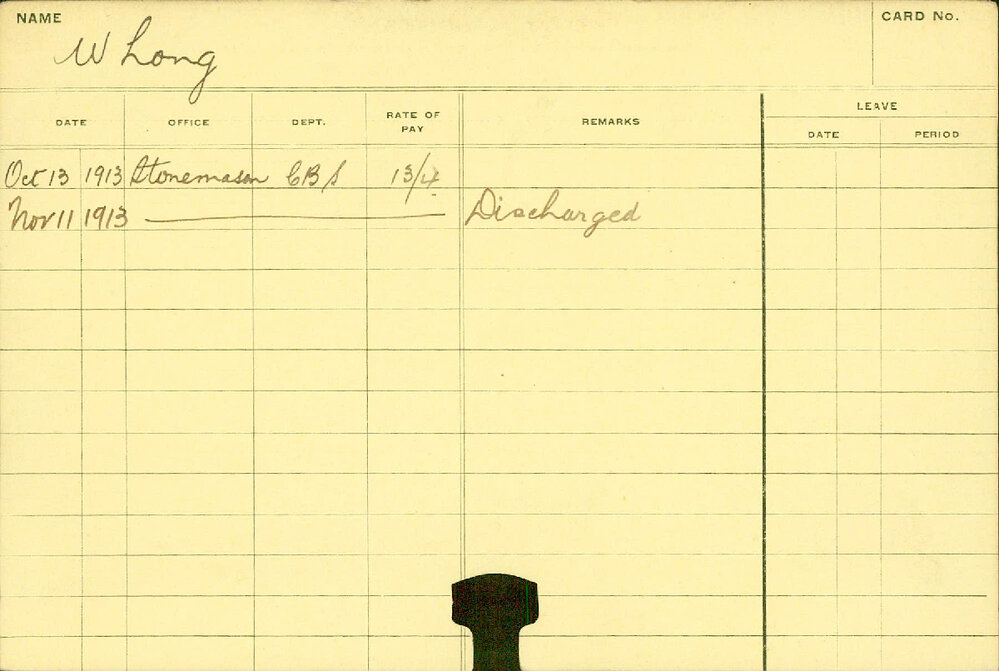 NAME
W Long
CARD No.
DATE OFFICE DEPT. RATE OF PAY REMARKS LEAVE
DATE PERIOD
Oct 13 1913 Stonemason CBS 13/4
Nov 11 1913 Discharged